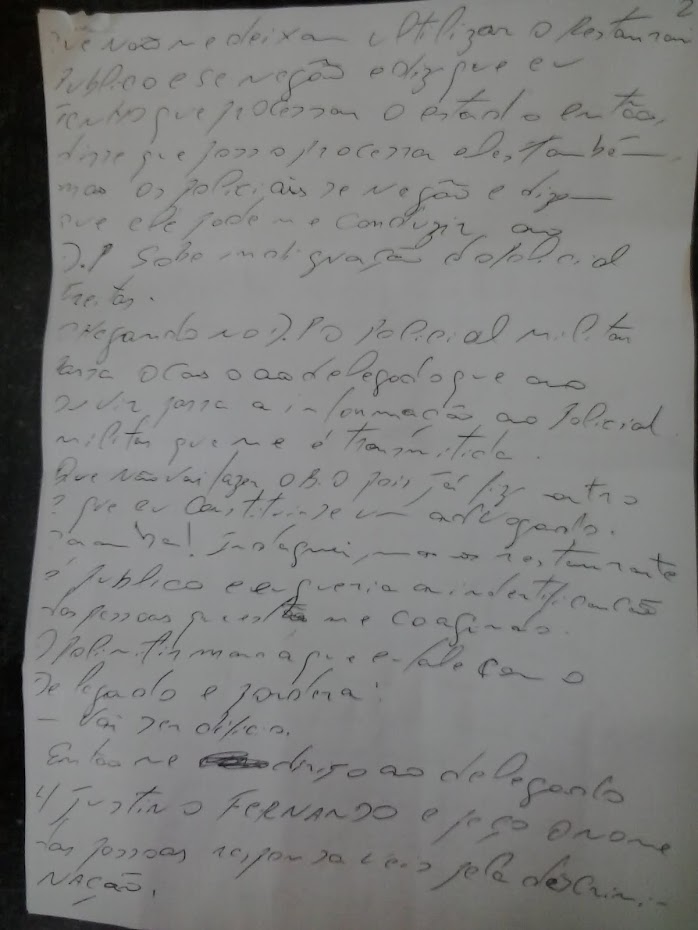 2
que não me deixam Ultilizar o Restauran
Publico e se negão e diz que eu
tenho que processar o estado então,
disse que posso processa eles também,
mas os policiais se negão e dizem
que ele pode me conduzir ao
D.P Sobe indignação do Policial
Freitas.
chegando no D.P o Policial militar
passa o caso ao delegado que ao
ouvir passa a informação ao Policial
militar que me é transmitida.
Que não vai fazer o B.O pois já fiz outro
e que eu constituisse um advogado.
Indaguei, mas o restaurante
é publico e eu queria a indentificação
das pessoas que estão me coagindo.
O Policial militar manda que eu fale com o
Delegado e pondera:
- Vai ser dificio.
Então me dirijo ao delegado
Justino FERNANDO e peço o nome
das pessoas responsaveis pela descrimi-
NAÇÃO.